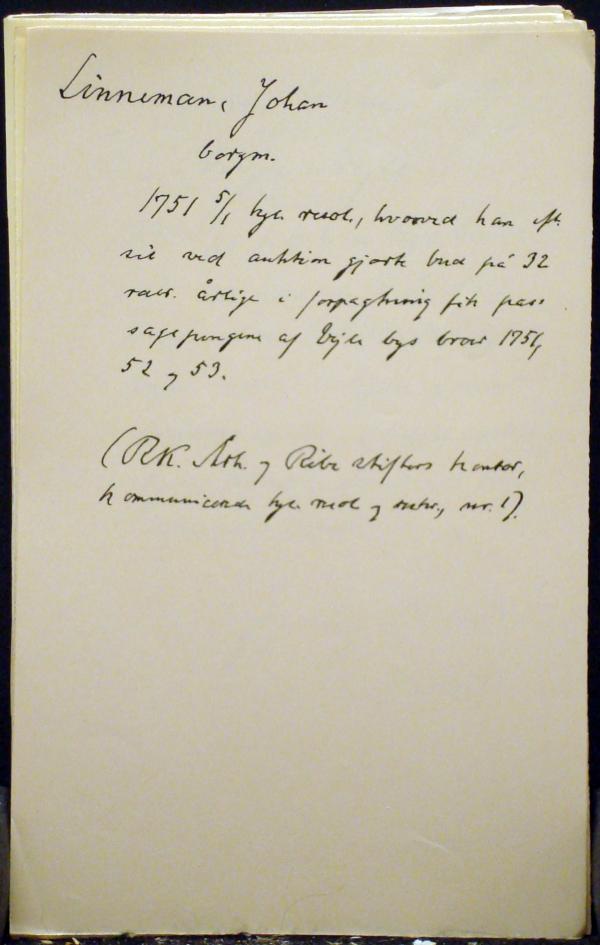 Linneman, Johan
borgm.
1751 5/1 kgl. resol., hvorved han eft.
sit ved auktion gjorte bud på 32
rdlr. årlige i forpagtning fik pas-
sagepengene af Vejle bys broer 1751,
52 og 53.
(RK. Årh. og Ribe stifters kontor,
kommunicerede kgl. resol og ordr., nr. 1).